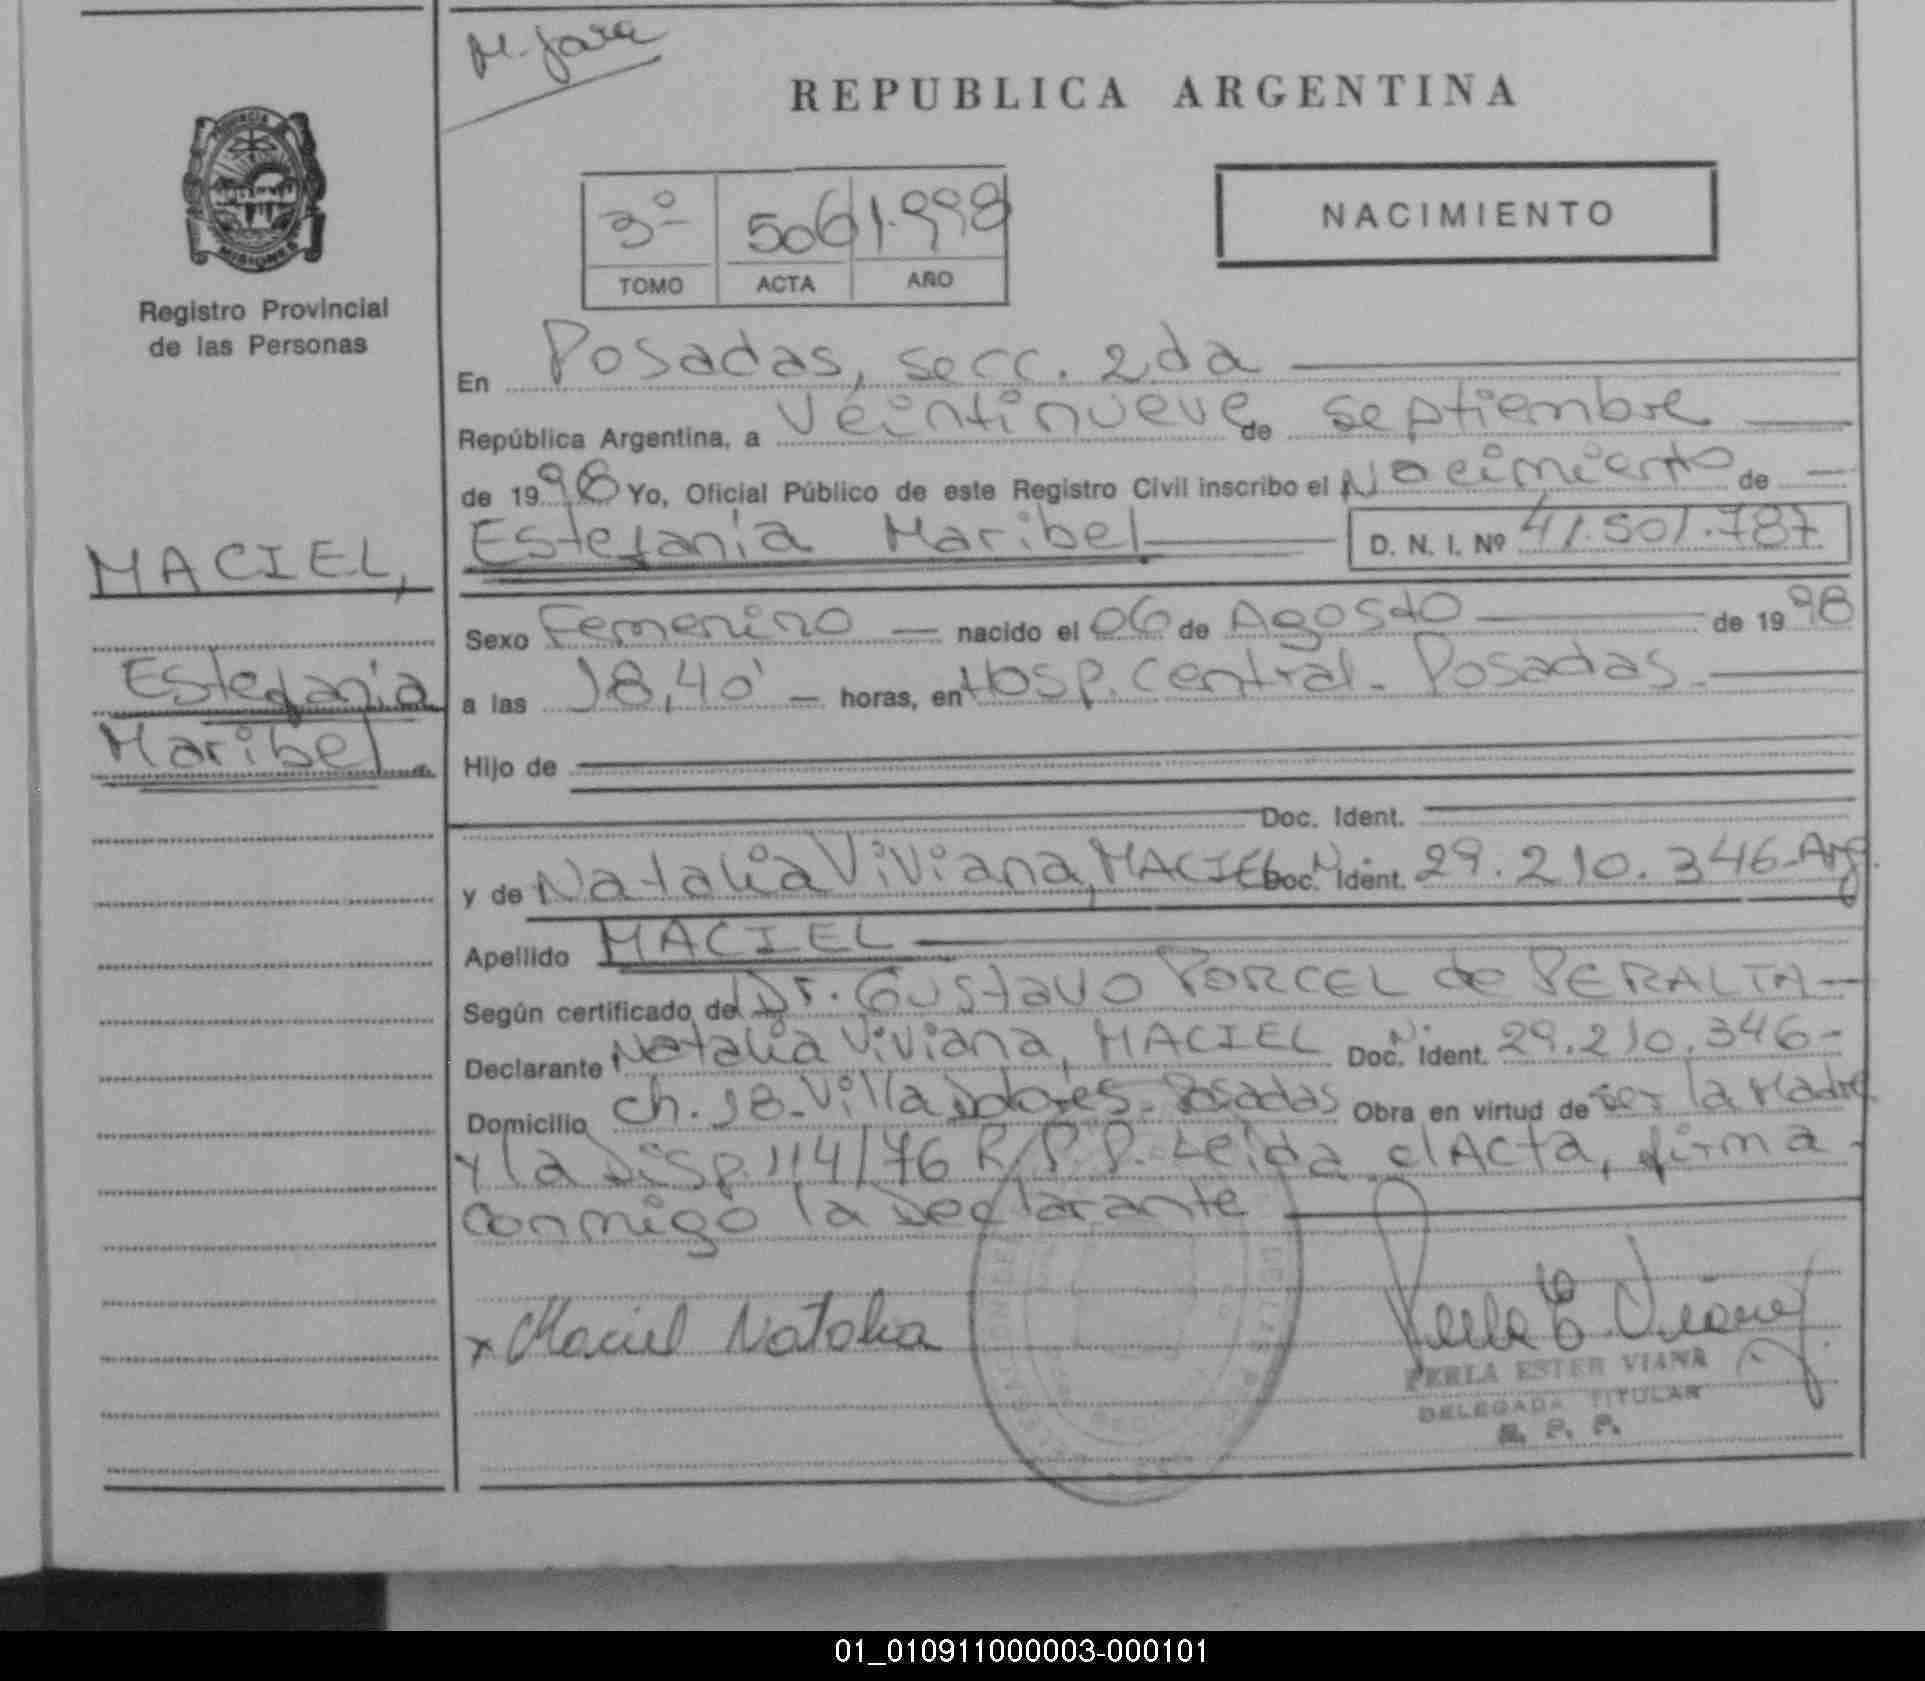 M. Jara
REPUBLICA ARGENTINA
PROVINCIA
MISIONES
Registro Provincial
de las Personas
3º 506 1.998
TOMO ACTA AÑO
NACIMIENTO
En Posadas, secc. 2da
República Argentina, a veintinueve de septiembre
de 1998 Yo, Oficial Público de este Registro Civil inscribo el Nacimiento de
Estefanía Maribel D. N. I. Nº 41.501.787
MACIEL,
Estefanía
Maribel
Sexo Femenino nacido el 06 de Agosto de 1998
a las 18,40' horas, en Hosp. Central - Posadas.
Hijo de
Doc. Ident.
y de Natalia Viviana, MACIEL Doc. N. Ident. 29.210.346-Arg.
Apellido MACIEL
Según certificado del Dr. Gustavo PORCEL de PERALTA
Declarante Natalia Viviana, MACIEL Doc. N. Ident. 29.210.346-
Domicilio ch. 18-Villa Dolores-Posadas Obra en virtud de ser la Madre
y la Disp. 114/76 R.P.P. Leída el Acta, firma
conmigo la Declarante
x Maciel Natalia
Perla E. Viana
PERLA ESTER VIANA
DELEGADA TITULAR
R. P. P.
01_010911000003-000101